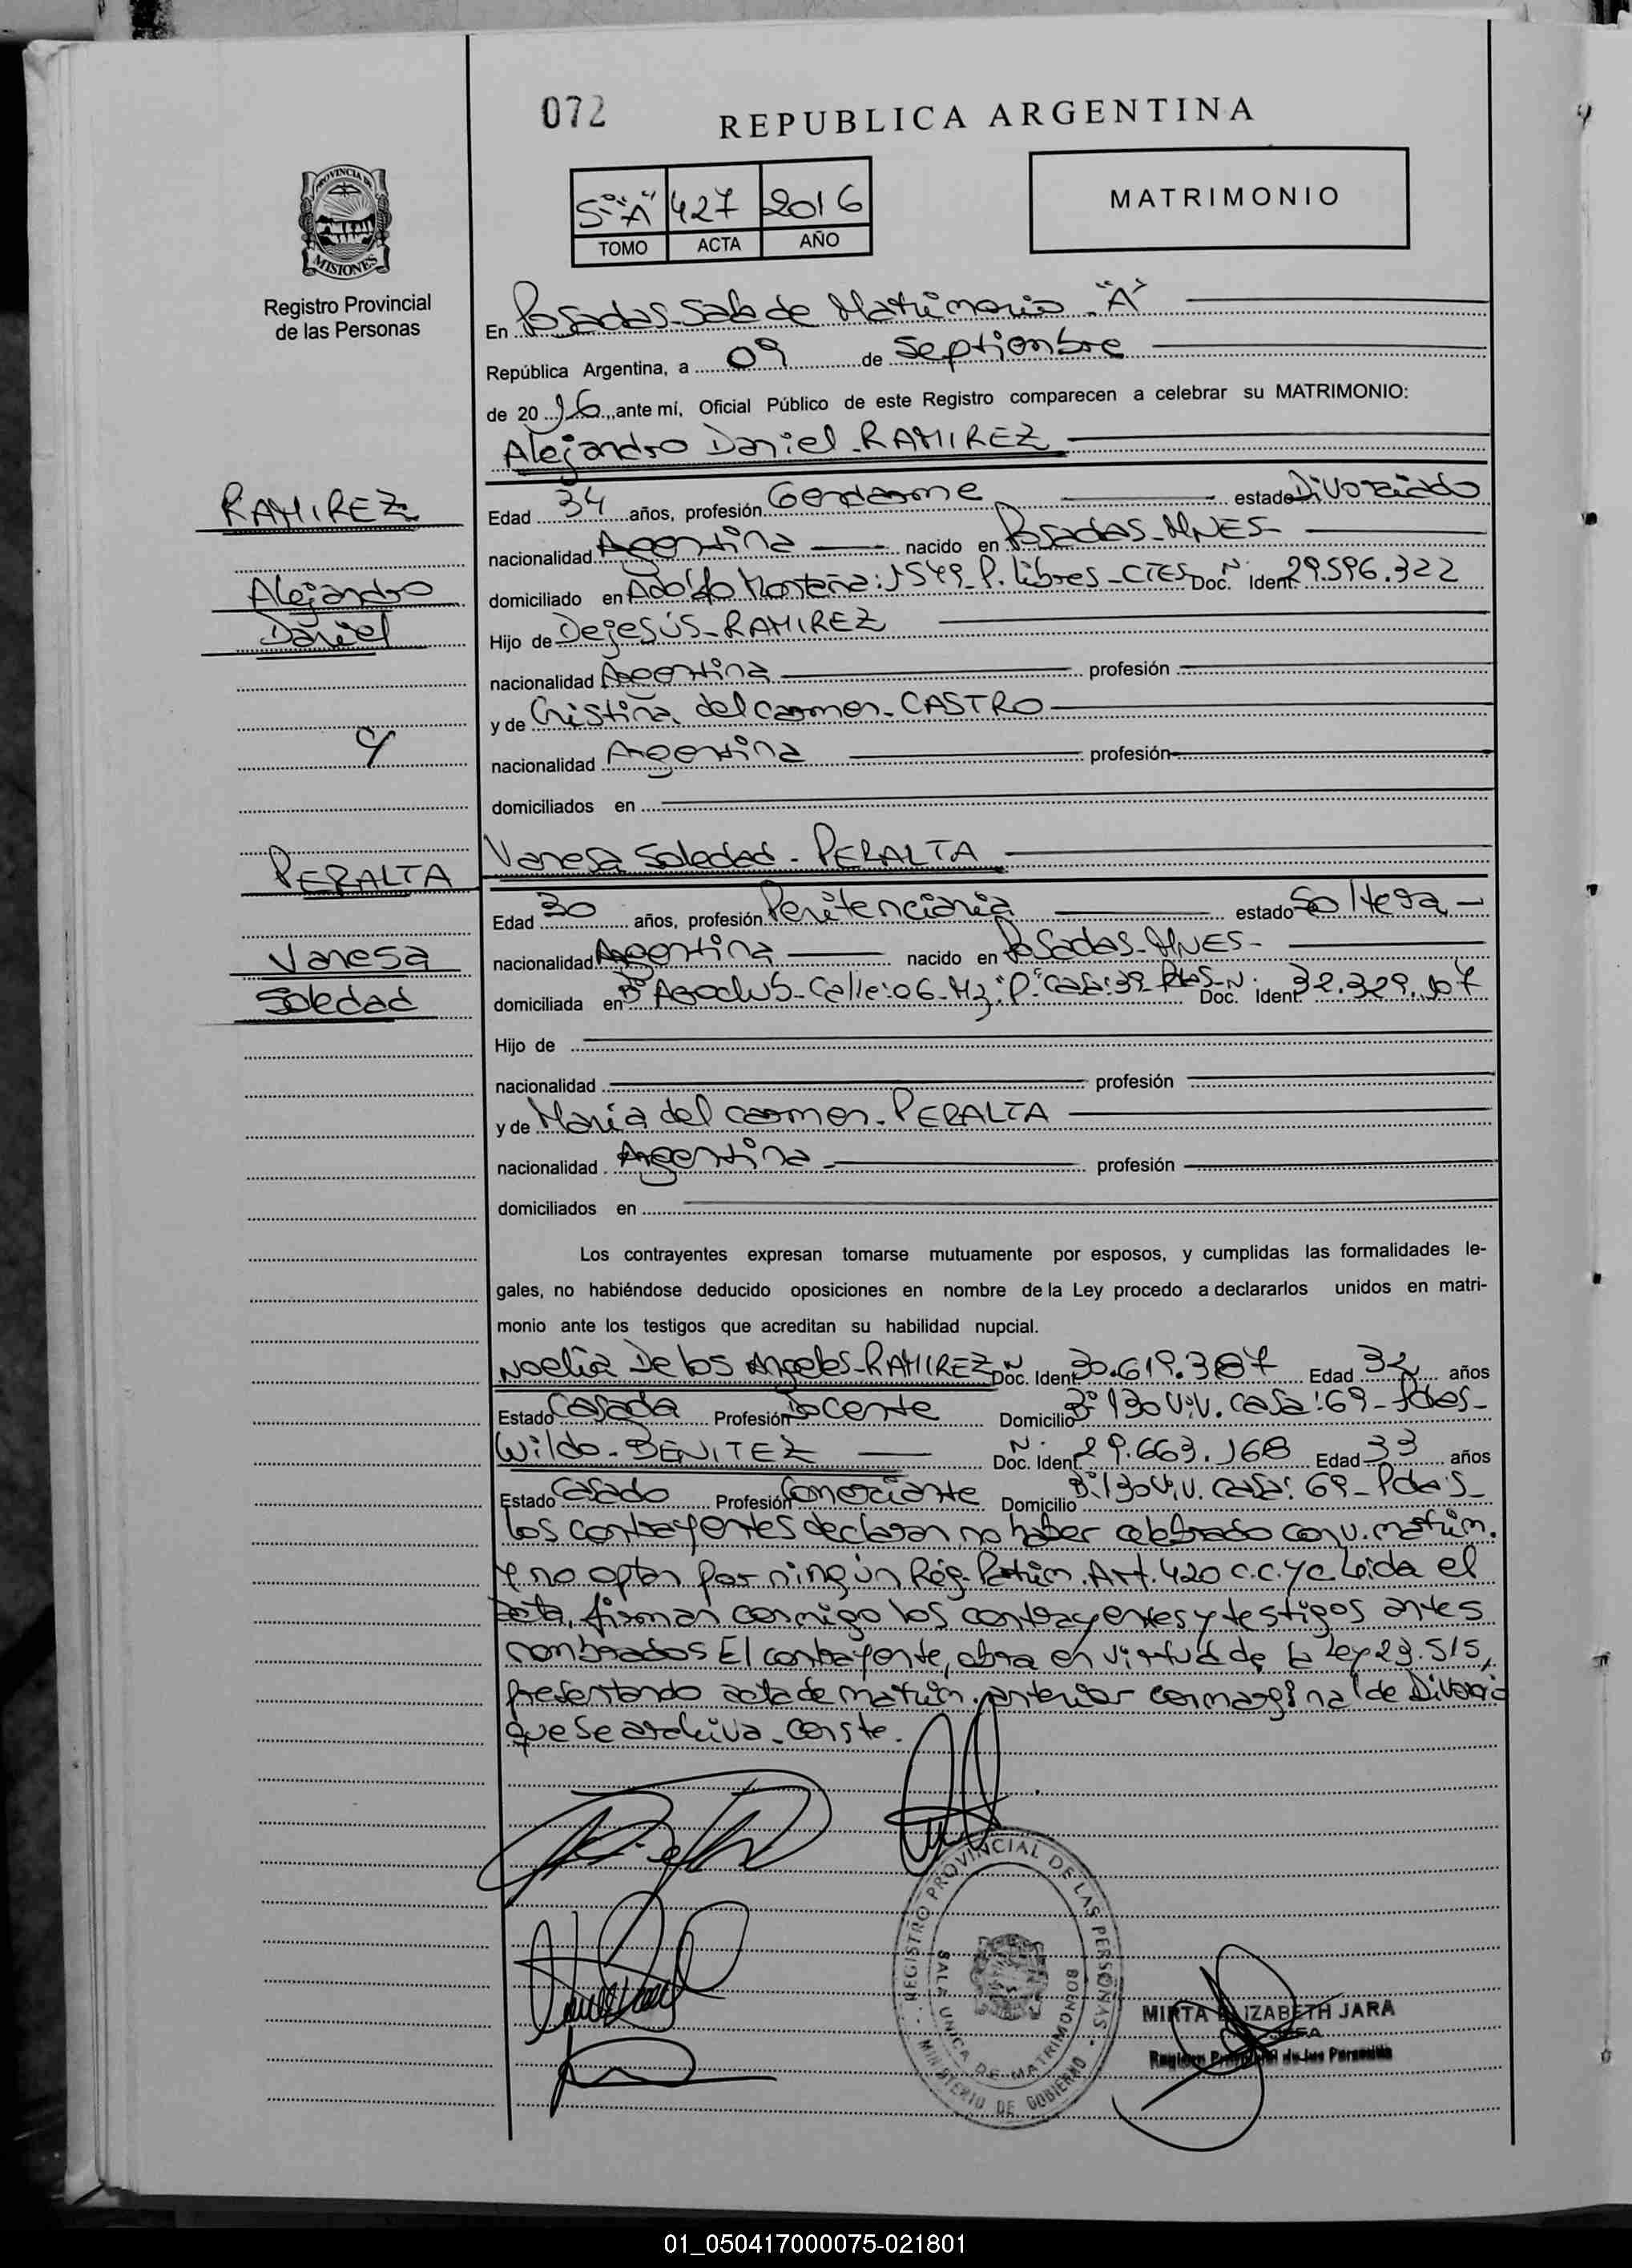 072
REPUBLICA ARGENTINA
5º "A" 427 2016
TOMO ACTA AÑO
MATRIMONIO
PROVINCIA DE
MISIONES
Registro Provincial
de las Personas
En Posadas-Sala de Matrimonio "A"
República Argentina, a 09 de Septiembre
de 20 16 ante mí, Oficial Público de este Registro comparecen a celebrar su MATRIMONIO:
Alejandro Daniel-RAMIREZ
RAMIREZ
Alejandro
Daniel
y
PERALTA
Vanesa
Soledad
Edad 34 años, profesión Gendarme estado Divorciado
nacionalidad Argentina nacido en Posadas-MNES-
domiciliado en Adolfo 1549-P. libres-CTES Doc. Nº Ident. 29.596.322
Hijo de Dejesús-RAMIREZ
nacionalidad Argentina profesión
y de Cristina del Carmen-CASTRO
nacionalidad Argentina profesión
domiciliados en
Vanesa Soledad-PERALTA
Edad 30 años, profesión Penitenciaria estado Soltera-
nacionalidad Argentina nacido en Posadas-MNES-
domiciliada en Bº Calle:06-Mz:"P"-Casa:39-Pdas- Doc. Nº Ident. 32.329.107
Hijo de
nacionalidad profesión
y de María del Carmen-PERALTA
nacionalidad Argentina profesión
domiciliados en
Los contrayentes expresan tomarse mutuamente por esposos, y cumplidas las formalidades le-
gales, no habiéndose deducido oposiciones en nombre de la Ley procedo a declararlos unidos en matri-
monio ante los testigos que acreditan su habilidad nupcial.
Noelia De los Angeles-RAMIREZ Doc. Nº Ident. 30.619.387 Edad 32 años
Estado Casada Profesión Docente Domicilio Bº 130 Viv. Casa:69-Pdas-
Wildo-BENITEZ Doc. Nº Ident. 29.663.168 Edad 33 años
Estado Casado Profesión Comerciante Domicilio Bº 130 Viv. Casa:69-Pdas-
Los contrayentes declaran no haber celebrado conv. matrim.
y no optan por ningún Rég. Patrim. Art. 420 C.C.yC. Leida el
acta, firman conmigo los contrayentes y testigos antes
nombrados El contrayente, obra en virtud de la ley 23.515,
presentando acta de matrim. anterior con marginal de Divorcio
que se archiva. conste.
REGISTRO PROVINCIAL DE LAS PERSONAS
SALA UNICA DE MATRIMONIOS
MINISTERIO DE GOBIERNO
MIRTA ELIZABETH JARA
JEFA
Registro Provincial de las Personas
01_050417000075-021801